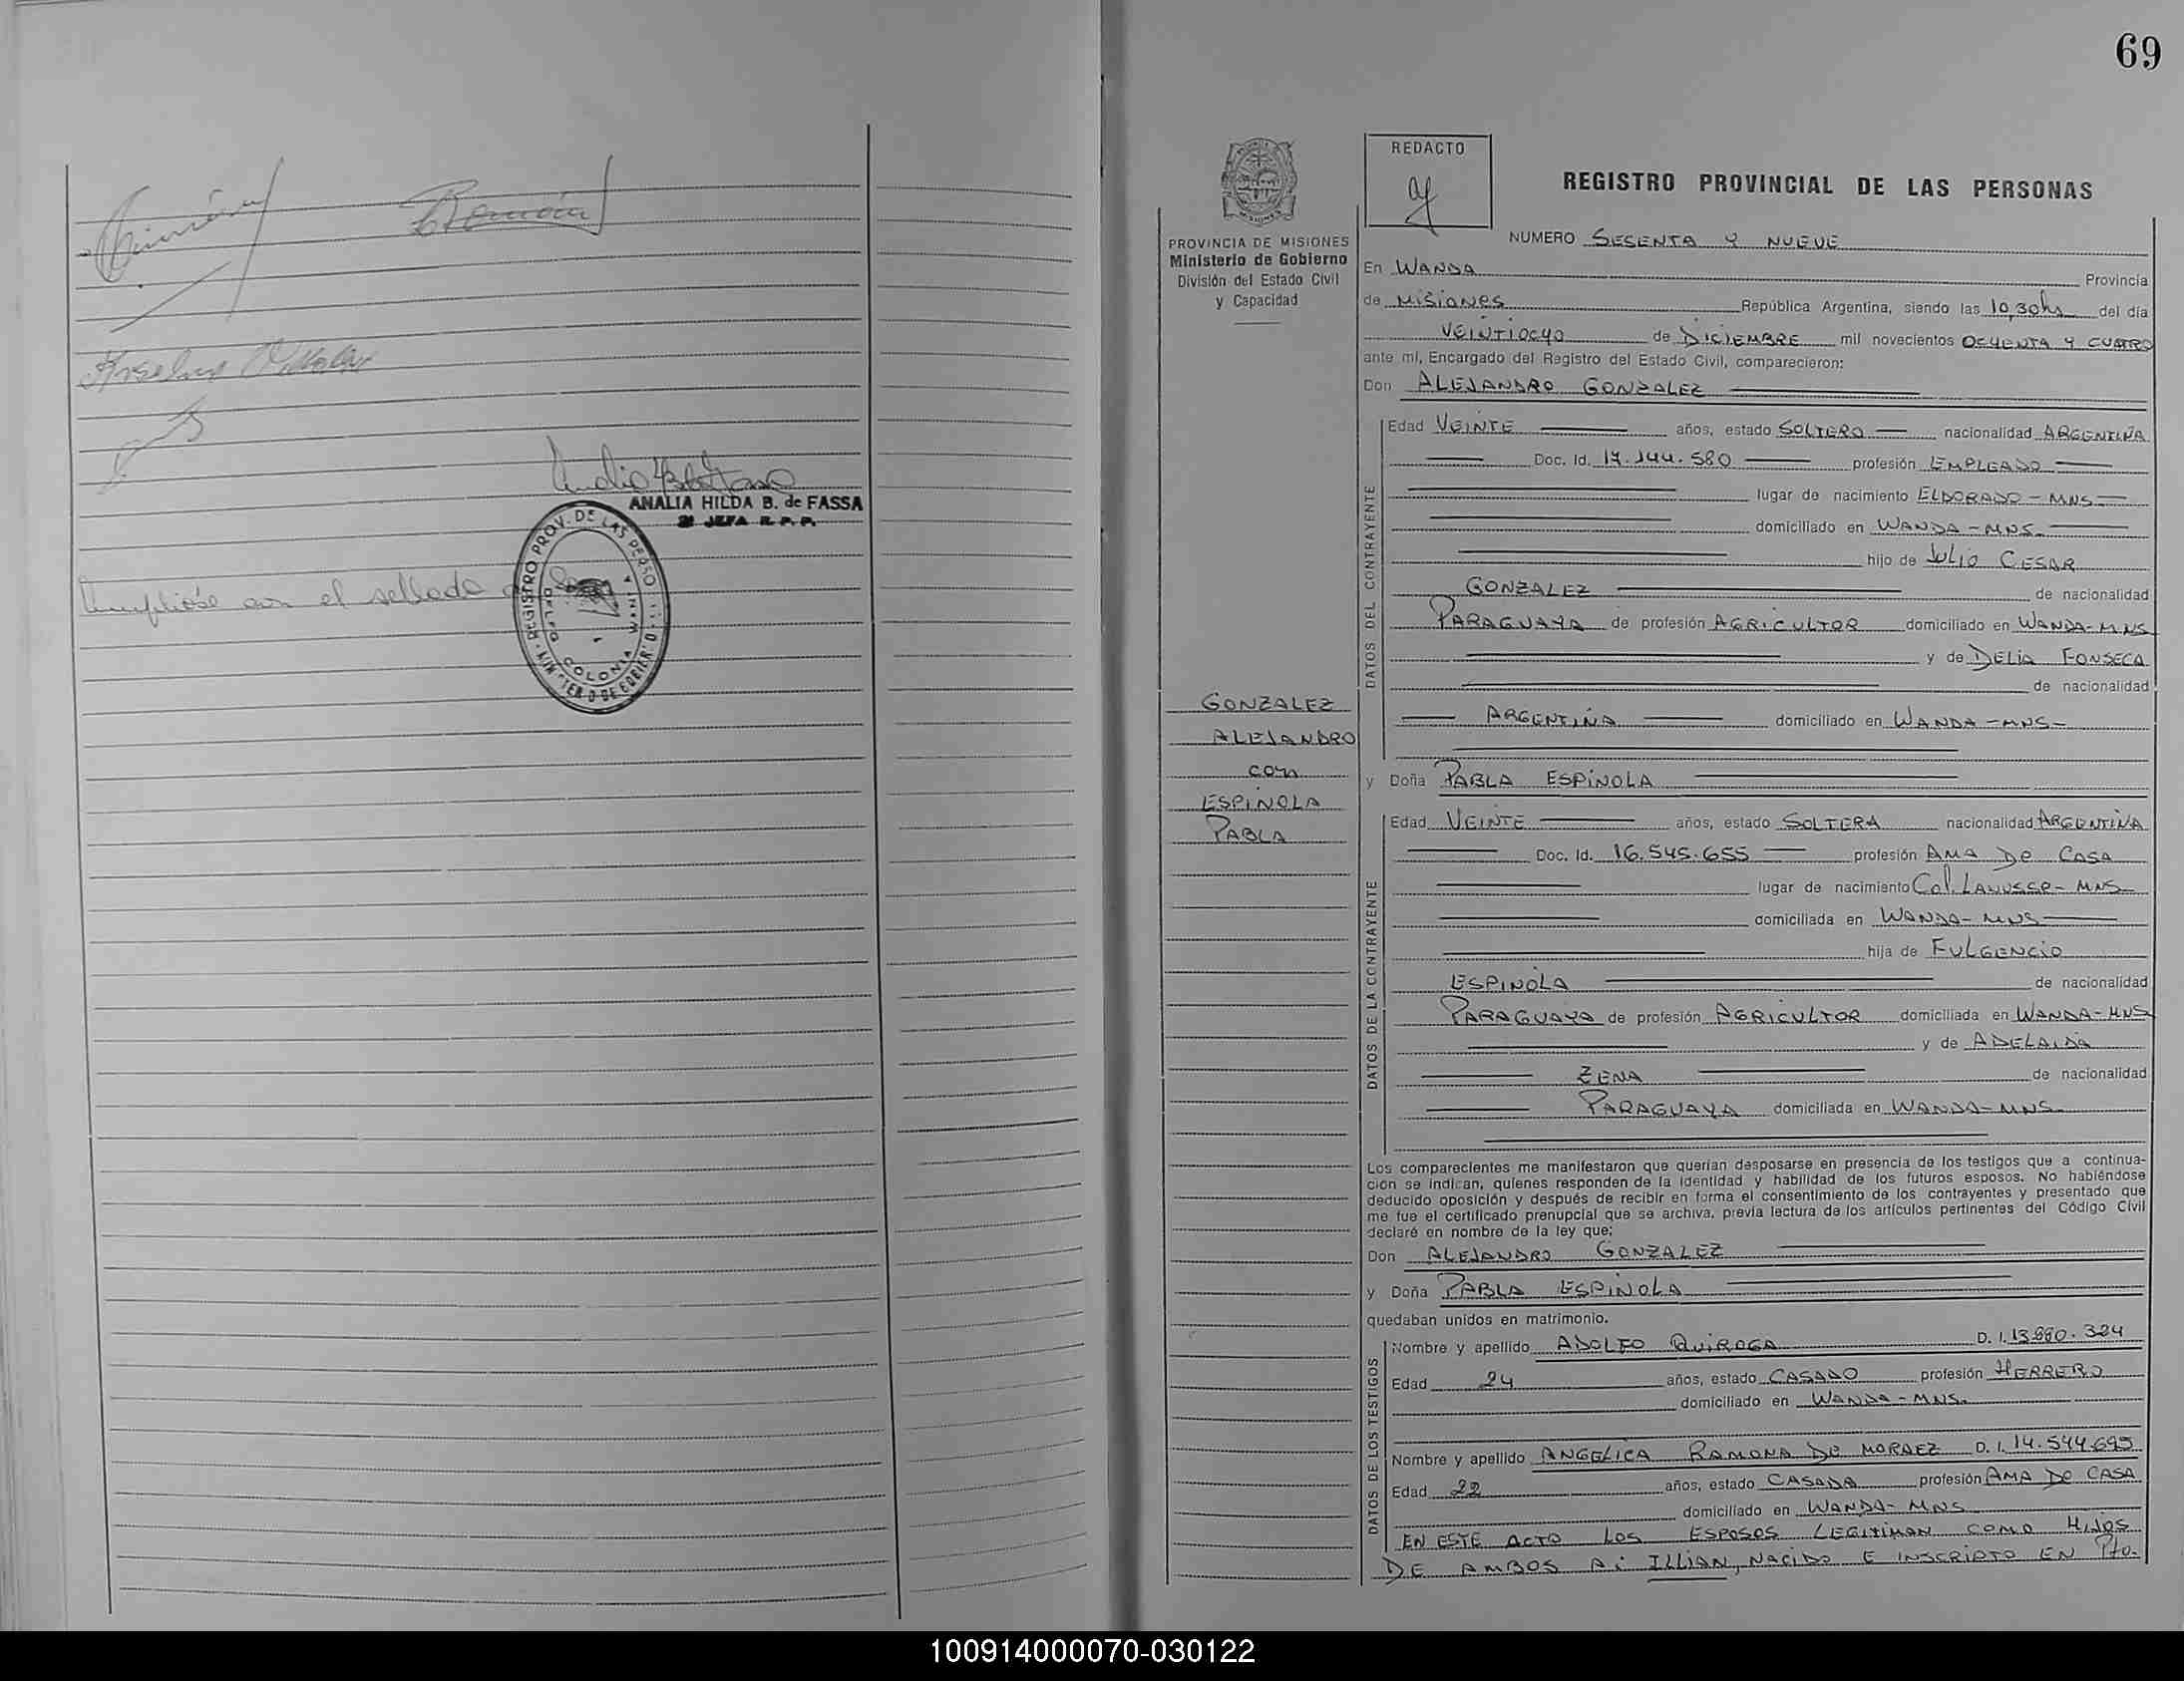 69
Ramón
Anselmo Villalba
ANALIA HILDA B. de FASSA
JEFA R. P. P.
REGISTRO PROV. DE LAS PERSO
COLONIA WANDA
MINISTERIO DE GOBIERNO
Cumplióse con el sellado
REDACTO
REGISTRO PROVINCIAL DE LAS PERSONAS
PROVINCIA DE MISIONES
Ministerio de Gobierno
División del Estado Civil
y Capacidad
NUMERO SESENTA Y NUEVE
En WANDA Provincia
de MISIONES República Argentina, siendo las 10,30hs del día
VEINTIOCHO de DICIEMBRE mil novecientos OCHENTA Y CUATRO
ante mí, Encargado del Registro del Estado Civil, comparecieron:
Don ALEJANDRO GONZALEZ
DATOS DEL CONTRAYENTE
Edad VEINTE años, estado SOLTERO nacionalidad ARGENTINA
Doc. Id. 17.144.580 profesión EMPLEADO
lugar de nacimiento ELDORADO - MNS
domiciliado en WANDA - MNS.
hijo de JULIO CESAR
GONZALEZ de nacionalidad
PARAGUAYA de profesión AGRICULTOR domiciliado en WANDA-MNS
y de DELIA FONSECA
de nacionalidad
ARGENTINA domiciliado en WANDA -MNS-
GONZALEZ
ALEJANDRO
con
ESPINOLA
PABLA
y Doña PABLA ESPINOLA
DATOS DE LA CONTRAYENTE
Edad VEINTE años, estado SOLTERA nacionalidad ARGENTINA
Doc. Id. 16.545.655 profesión AMA DE CASA
lugar de nacimiento Col. LANUSSE- MNS
domiciliada en WANDA- MNS
hija de FULGENCIO
ESPINOLA de nacionalidad
PARAGUAYA de profesión AGRICULTOR domiciliada en WANDA-MNS
y de ADELAIDA
ZENA de nacionalidad
PARAGUAYA domiciliada en WANDA-MNS.
Los comparecientes me manifestaron que querían desposarse en presencia de los testigos que a continua-
ción se indican, quienes responden de la identidad y habilidad de los futuros esposos. No habiéndose
deducido oposición y después de recibir en forma el consentimiento de los contrayentes y presentado que
me fue el certificado prenupcial que se archiva, previa lectura de los artículos pertinentes del Código Civil
declaré en nombre de la ley que:
Don ALEJANDRO GONZALEZ
y Doña PABLA ESPINOLA
quedaban unidos en matrimonio.
DATOS DE LOS TESTIGOS
Nombre y apellido ADOLFO QUIROGA D. I. 13.880.324
Edad 24 años, estado CASADO profesión HERRERO
domiciliado en WANDA - MNS.
Nombre y apellido ANGELICA RAMONA DE MORAEZ D. I. 14.544.695
Edad 22 años, estado CASADA profesión AMA DE CASA
domiciliado en WANDA- MNS
EN ESTE ACTO LOS ESPOSOS LEGITIMAN COMO HIJOS
DE AMBOS A: ILLIAN, NACIDO E INSCRIPTO EN Pto.
100914000070-030122